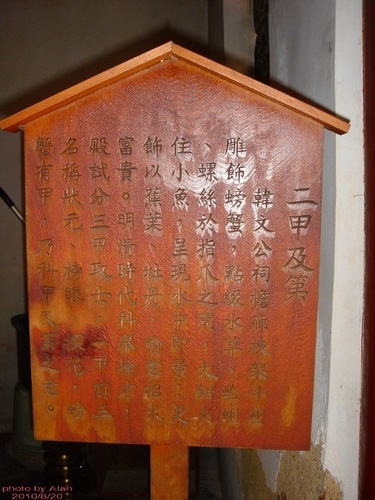 二甲及第
韓文公祠簷廊樑架斗坐
雕飾螃蟹,點綴水草、
、螺絲於指爪之間,大
住小魚,呈現水中即景;更
飾以蕉葉、牡丹,喻意招來
富貴。明清時代科舉
殿試分三甲取士,一甲前三
名稱狀元、榜眼、探花,
蟹有甲,乃科甲及第之意。
photo by Alan
2010/8/20